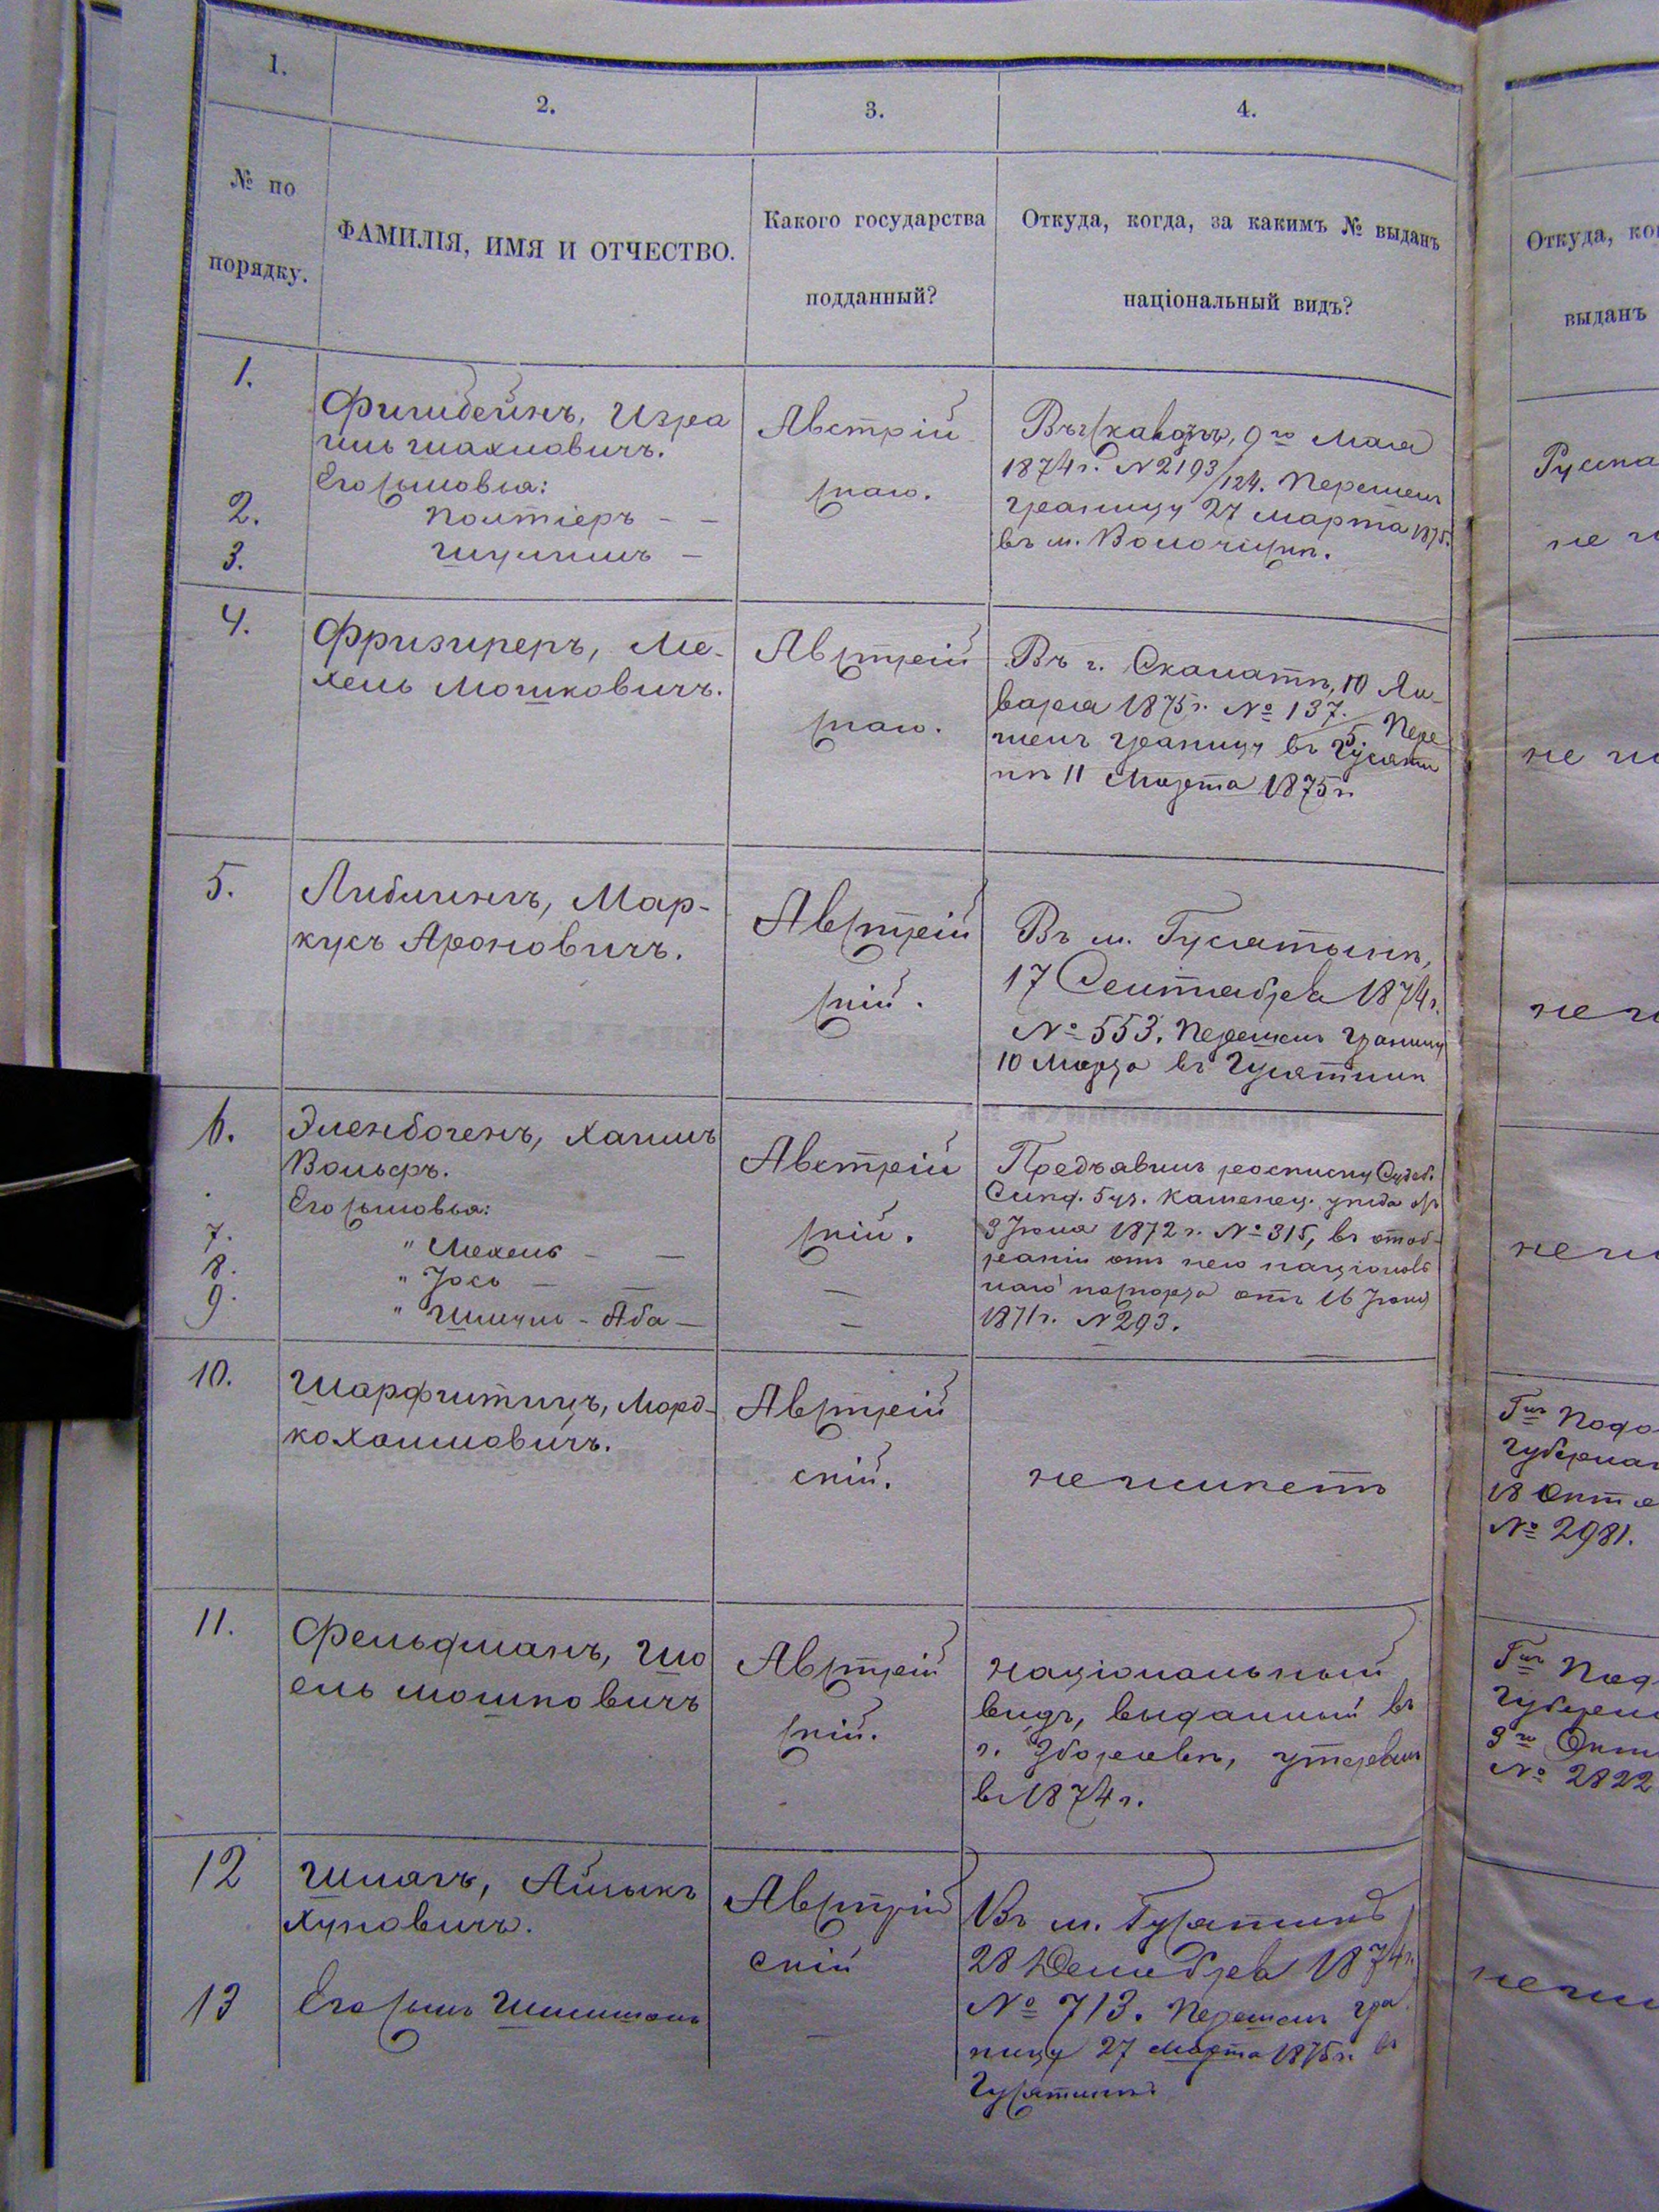 1.
2.
3.
4.
№ по
порядку.
ФАМИЛІЯ, ИМЯ И ОТЧЕСТВО.
Какого государства
подданный?
Откуда, когда, за какимъ № выданъ
національный видъ?
Откуда, ко
выданъ
1.
Фишбейнъ, Изра
иль Шахновичъ.
Его сыновья:
2.
3.
Австрій
скаго.
9го Мая
1874 г. № 2193/124. Перешелъ
границу 27 марта 1875.
въ м. Волочискъ.
Русска
не и
4.
Фризиреръ, Ме-
хель Мошковичъ.
Австрій
скаго.
Въ г. Скалатѣ, 10 Ян-
варя 1875 г. № 137. Пере
шелъ границу въ Гусяти
нѣ 11 Марта 1875 г.
не и
5.
Либлингъ, Мар-
кусъ Ароновичъ.
Австрій
скій.
Въ м. Гусятынѣ,
17 Сентября 1874 г.
№ 553. Перешелъ границу
10 Марта въ Гусятинѣ
не и
6.
Эленбогенъ, Хаимъ
Вольфъ.
Его сыновья:
7.
" Мехель — —
8.
" Іось — —
9.
" Шмуль - Аба —
Австрій
скій.
—
—
Предъявилъ росписку Судеб.
Слѣд. 5 уч. Каменец. уѣзда отъ
3 Іюня 1872 г. № 315, въ отоб-
раніи отъ него національ
наго паспорта отъ 16
1871 г. № 293.
не и
10.
Шарфштицъ, Морд-
ко Хаимовичъ.
Австрій
скій.
не имѣетъ
Гмъ Подо
Губернат
18 Октя
№ 2981.
11.
Фельдманъ, Шо
ель Мошковичъ
Австрій
скій.
Національный
видъ, выданный въ
г. Зборовѣ, утерянъ
въ 1874 г.
Гмъ Под
Губерн
3го Окт
№ 2822
12
Шмагъ, Айзыкъ
Австрій
скій
Въ м. Гусятинѣ
28 Декабря 1874 г.
№ 713. Перешелъ гра
ницу 27 марта 1875 г. въ
Гусятинѣ.
не и
13
Его сынъ
—